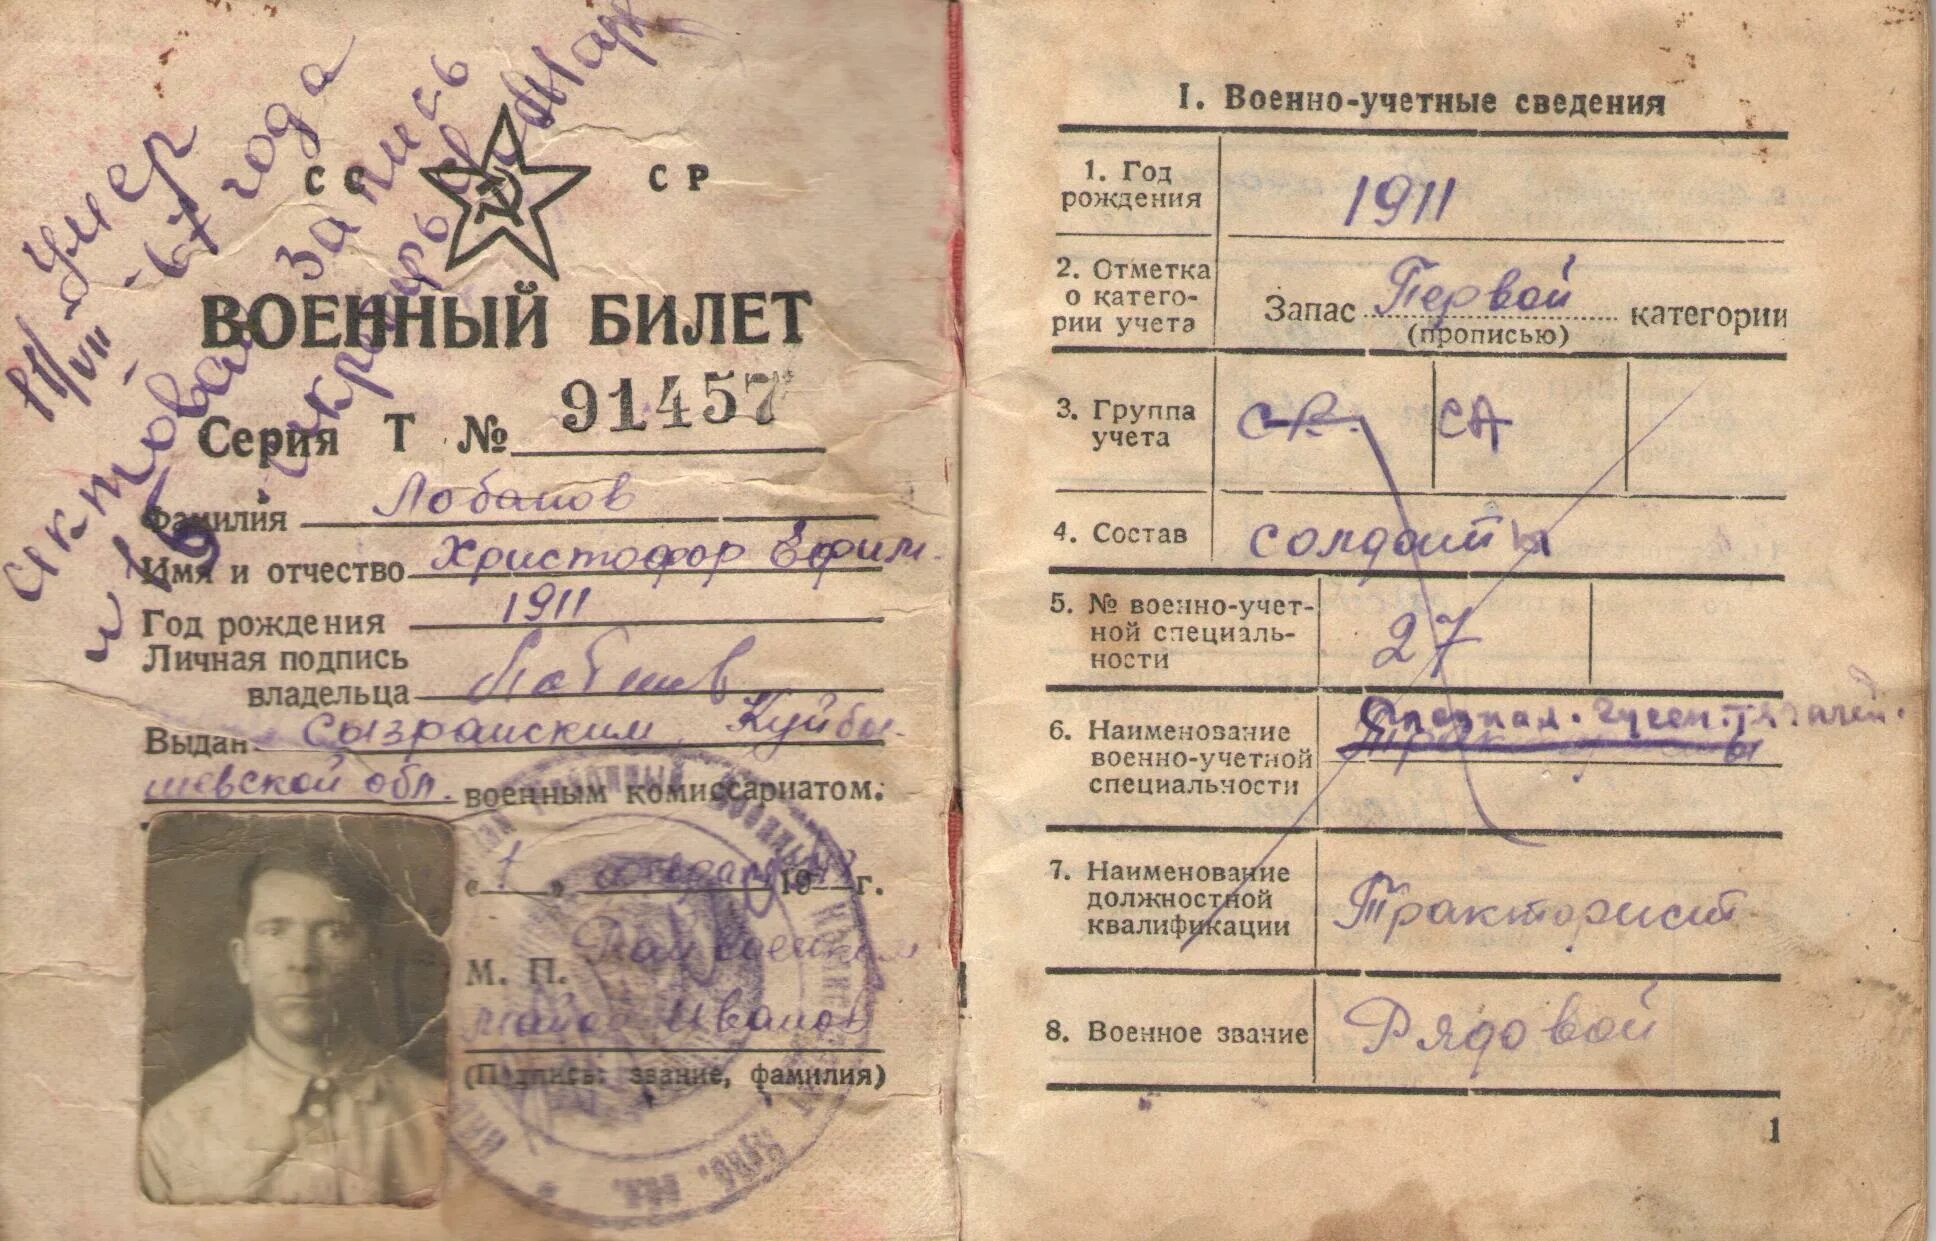 Умер
11/VII - 67 года
Актовая запись
№ 16
СС СР
ВОЕННЫЙ БИЛЕТ
Серия Т № 91457
Фамилия Лобанов
Имя и отчество Христофор Ефим.
Год рождения 1911
Личная подпись
владельца Лобанов
Выдан Сызранским, Куйбы-
шевской обл. военным комиссариатом.
«1» 19 г.
М. П. Райвоенком
майор Иванов
(Подпись, звание, фамилия)
I. Военно-учетные сведения
1. Год
рождения
1911
2. Отметка
о катего-
рии учета
Запас Первой категории
(прописью)
3. Группа
учета
СА
4. Состав
солдаты
5. № военно-учет-
ной специаль-
ности
27
6. Наименование
военно-учетной
специальности
7. Наименование
должностной
квалификации
Тракторист
8. Военное звание
Рядовой
1